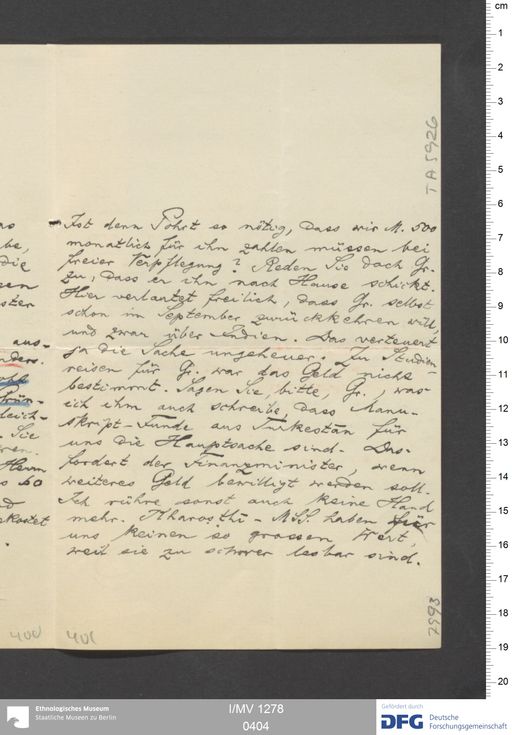 TA 5926
Ist denn Pohrt so nötig, dass wir M. 500
monatlich für ihn zahlen müssen bei
freier Verpflegung? Reden Sie doch Gr.
zu, dass er ihn nach Hause schickt.
Hier verlautet freilich, dass Gr. selbst
schon im September zurückkehren will,
und zwar über Indien. Das verteuert
ja die Sache ungeheuer. Zu Studien
reisen für Gr. war das Geld nicht
bestimmt. Sagen Sie, bitte, Gr., was
ich ihm auch schreibe, dass Manu-
skript-Funde aus Turkestan für
uns die Hauptsache sind. Das
fordert der Finanzminister, wenn
weiteres Geld bewilligt werden soll.
Ich rühre sonst auch keine Hand
mehr. Kharosthi-MSS. haben für
uns keinen so grossen Wert,
weil sie zu schwer lesbar sind.
be,
die
ster
aus-
leich-
Sie
Herrn
60
kostet
400
401
7993
cm
1
2
3
4
5
6
7
8
9
10
11
12
13
14
15
16
17
18
19
20
Ethnologisches Museum
Staatliche Museen zu Berlin
I/MV 1278
0404
Gefördert durch
DFG Deutsche
Forschungsgemeinschaft